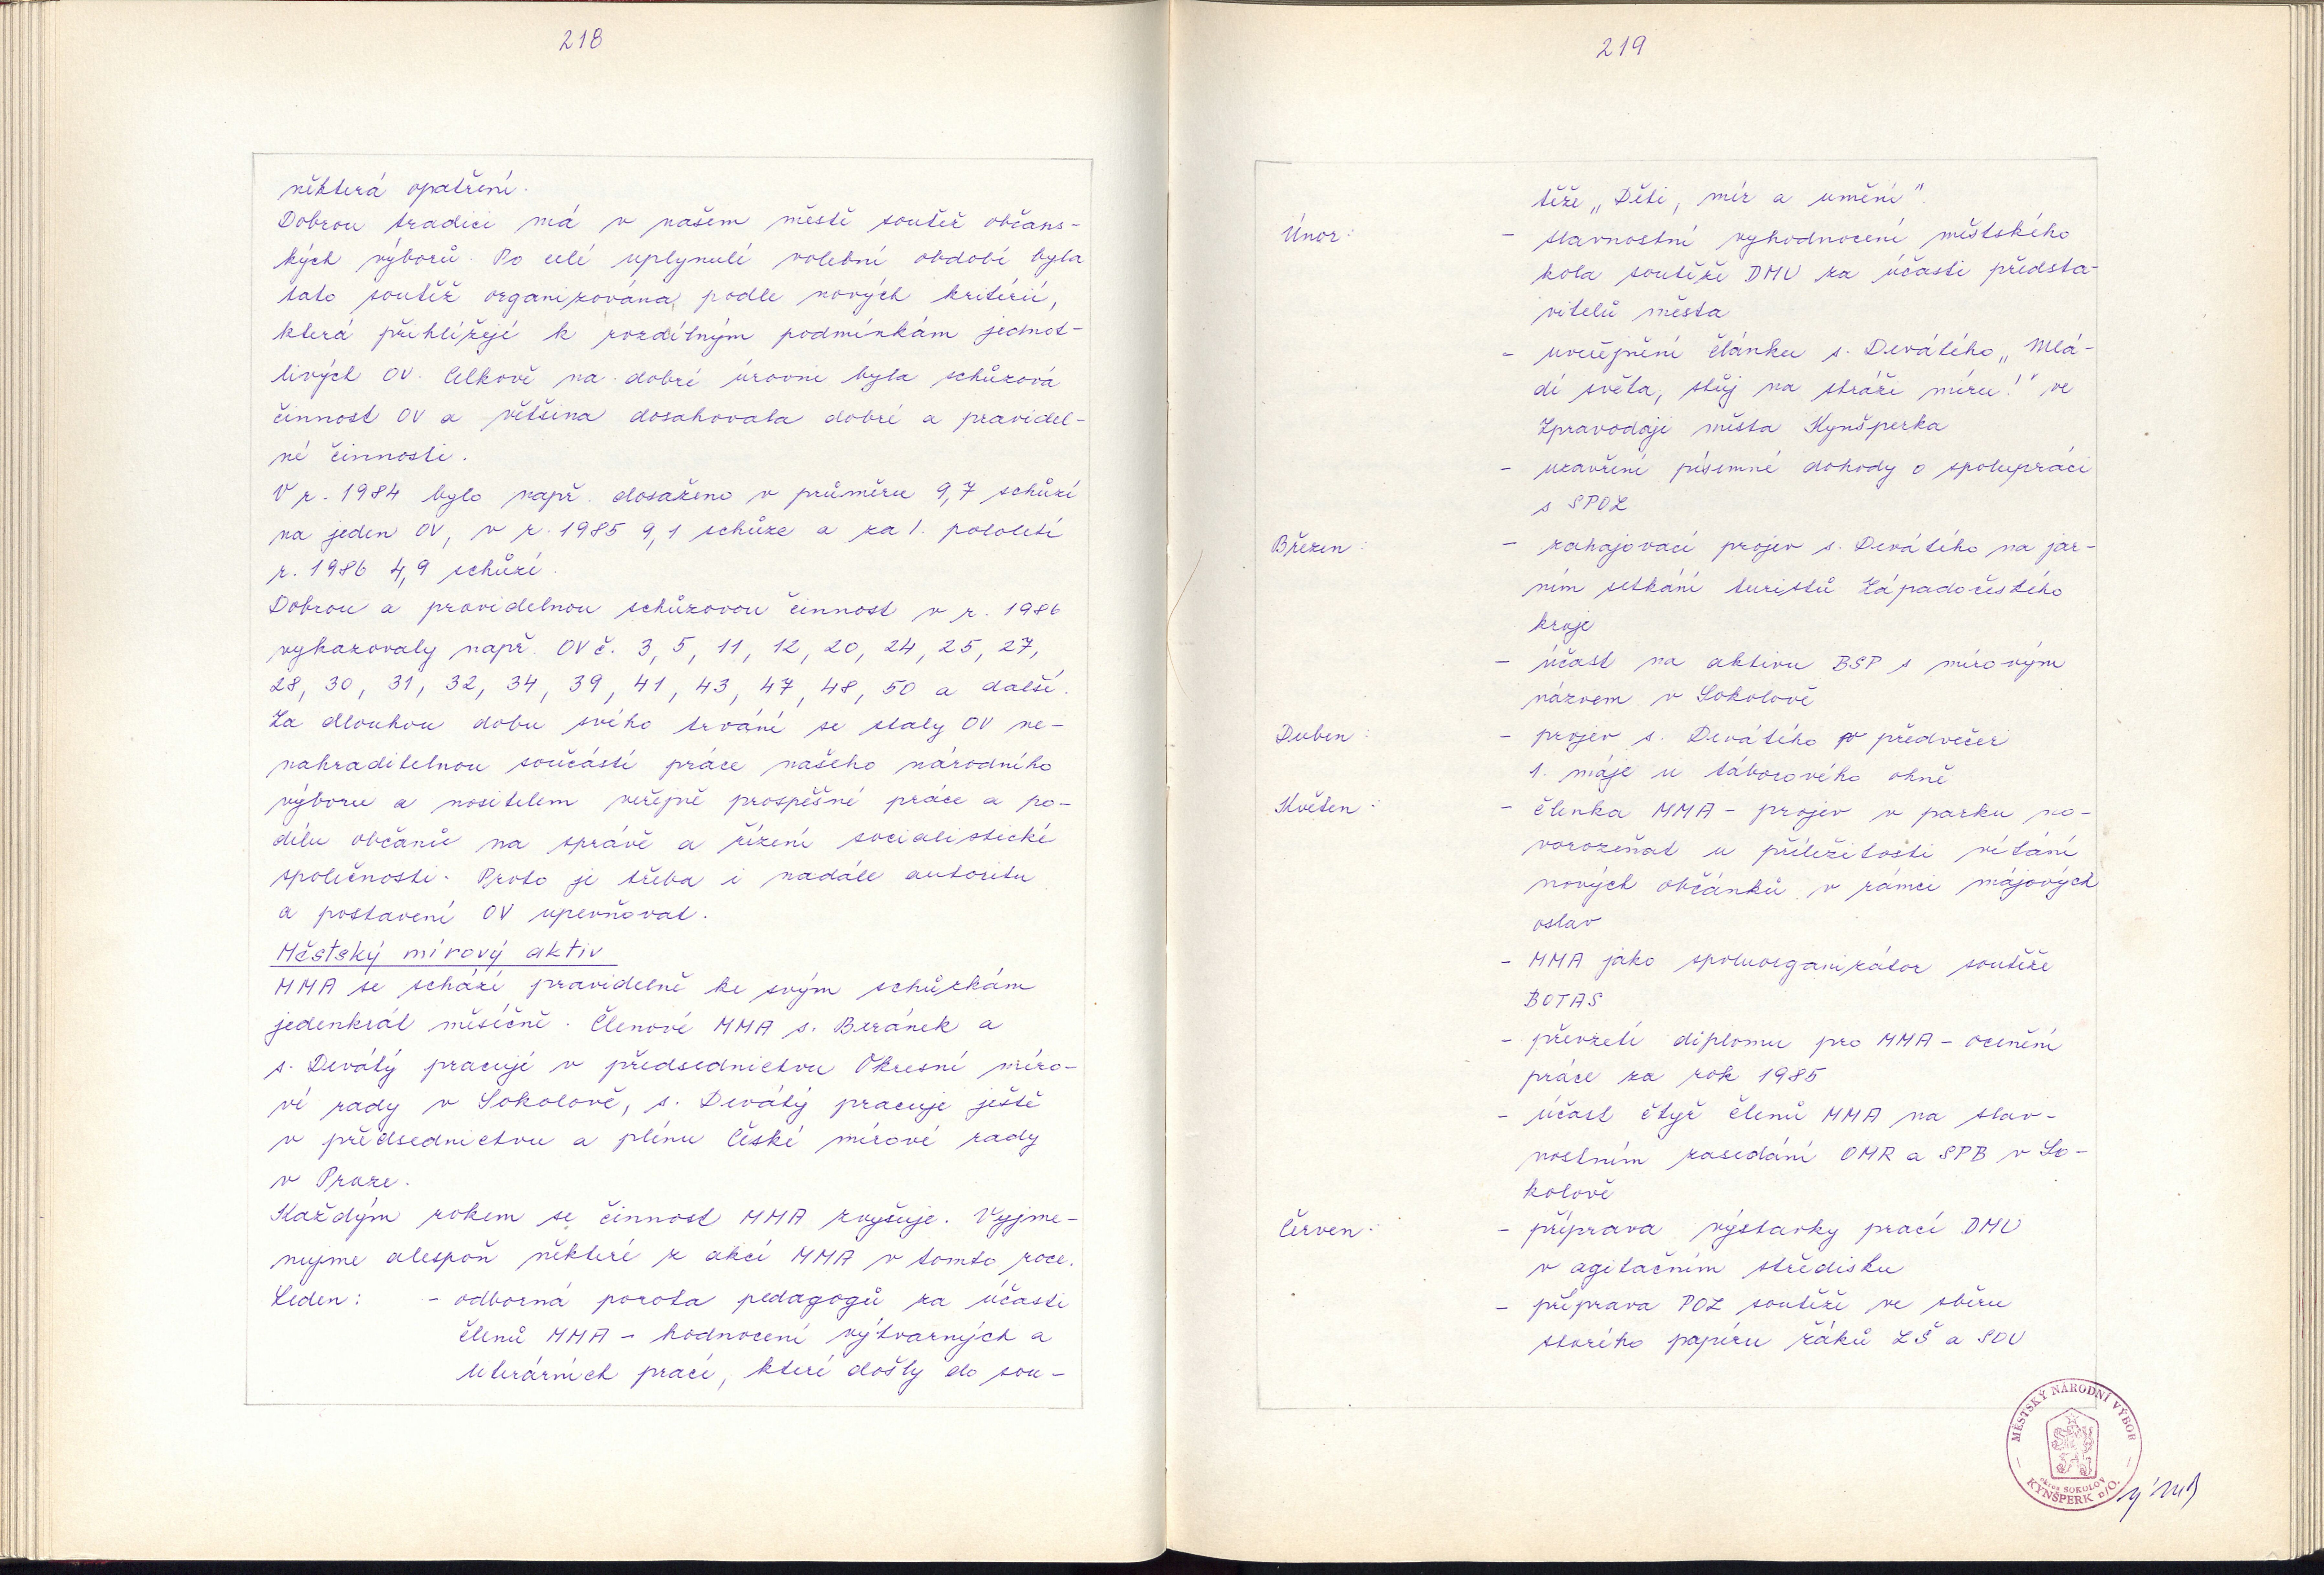 218
některá opatření.
Dobrou tradici má v našem městě soutěž občans-
kých výborů. Po celé uplynulé volební období byla
tato soutěž organizována podle nových kritérií,
která přihlížejí k rozdílným podmínkám jednot-
livých OV. Celkově na dobré úrovni byla schůzová
činnost OV a většina dosahovala dobré a pravidel-
né činnosti.
V r. 1984 bylo např. dosaženo v průměru 9,7 schůzí
na jeden OV, v r. 1985 9,1 schůze a za 1. pololetí
r. 1986 4,9 schůzí.
Dobrou a pravidelnou schůzovou činnost v r. 1986
vykazovaly např. OV č. 3, 5, 11, 12, 20, 24, 25, 27,
28, 30, 31, 32, 34, 39, 41, 43, 47, 48, 50 a další.
Za dlouhou dobu svého trvání se staly OV ne-
nahraditelnou součástí práce našeho národního
výboru a nositelem veřejně prospěšné práce a po-
dílu občanů na správě a řízení socialistické
společnosti. Proto je třeba i nadále autoritu
a postavení OV upevňovat.
Městský mírový aktiv
MMA se schází pravidelně ke svým schůzkám
jedenkrát měsíčně. Členové MMA s. Beránek a
s. Devátý pracují v předsednictvu Okresní míro-
vé rady v Sokolově, s. Devátý pracuje ještě
v předsednictvu a plénu České mírové rady
v Praze.
Každým rokem se činnost MMA zvyšuje. Vyjme-
nujme alespoň některé z akcí MMA v tomto roce.
Leden: - odborná porota pedagogů za účasti
členů MMA - hodnocení výtvarných a
literárních prací, které došly do sou-
219
těže „Děti, mír a umění".
Únor: - slavnostní vyhodnocení městského
kola soutěže DMU za účasti předsta-
vitelů města
- uveřejnění článku s. Devátého „Mlá-
dí světa, stůj na stráži míru!" ve
Zpravodaji města Kynšperka
- uzavření písemné dohody o spolupráci
s SPOZ
Březen: - zahajovací projev s. Devátého na jar-
ním setkání turistů Západočeského
kraje
- účast na aktivu BSP s mírovým
názvem v Sokolově
Duben: - projev s. Devátého v předvečer
1. máje u táborového ohně
Květen: - členka MMA - projev v parku no-
vorozeňat u příležitosti vítání
nových občánků v rámci májových
oslav
- MMA jako spoluorganizátor soutěže
BOTAS
- převzetí diplomu pro MMA - ocenění
práce za rok 1985
- účast čtyř členů MMA na slav-
nostním zasedání OMR a SPB v So-
kolově
Červen: - příprava výstavky prací DMU
v agitačním středisku
- příprava POZ soutěží ve sběru
starého papíru žáků ZŠ a SOU
MĚSTSKÝ NÁRODNÍ VÝBOR
okres SOKOLOV
KYNŠPERK n/O.